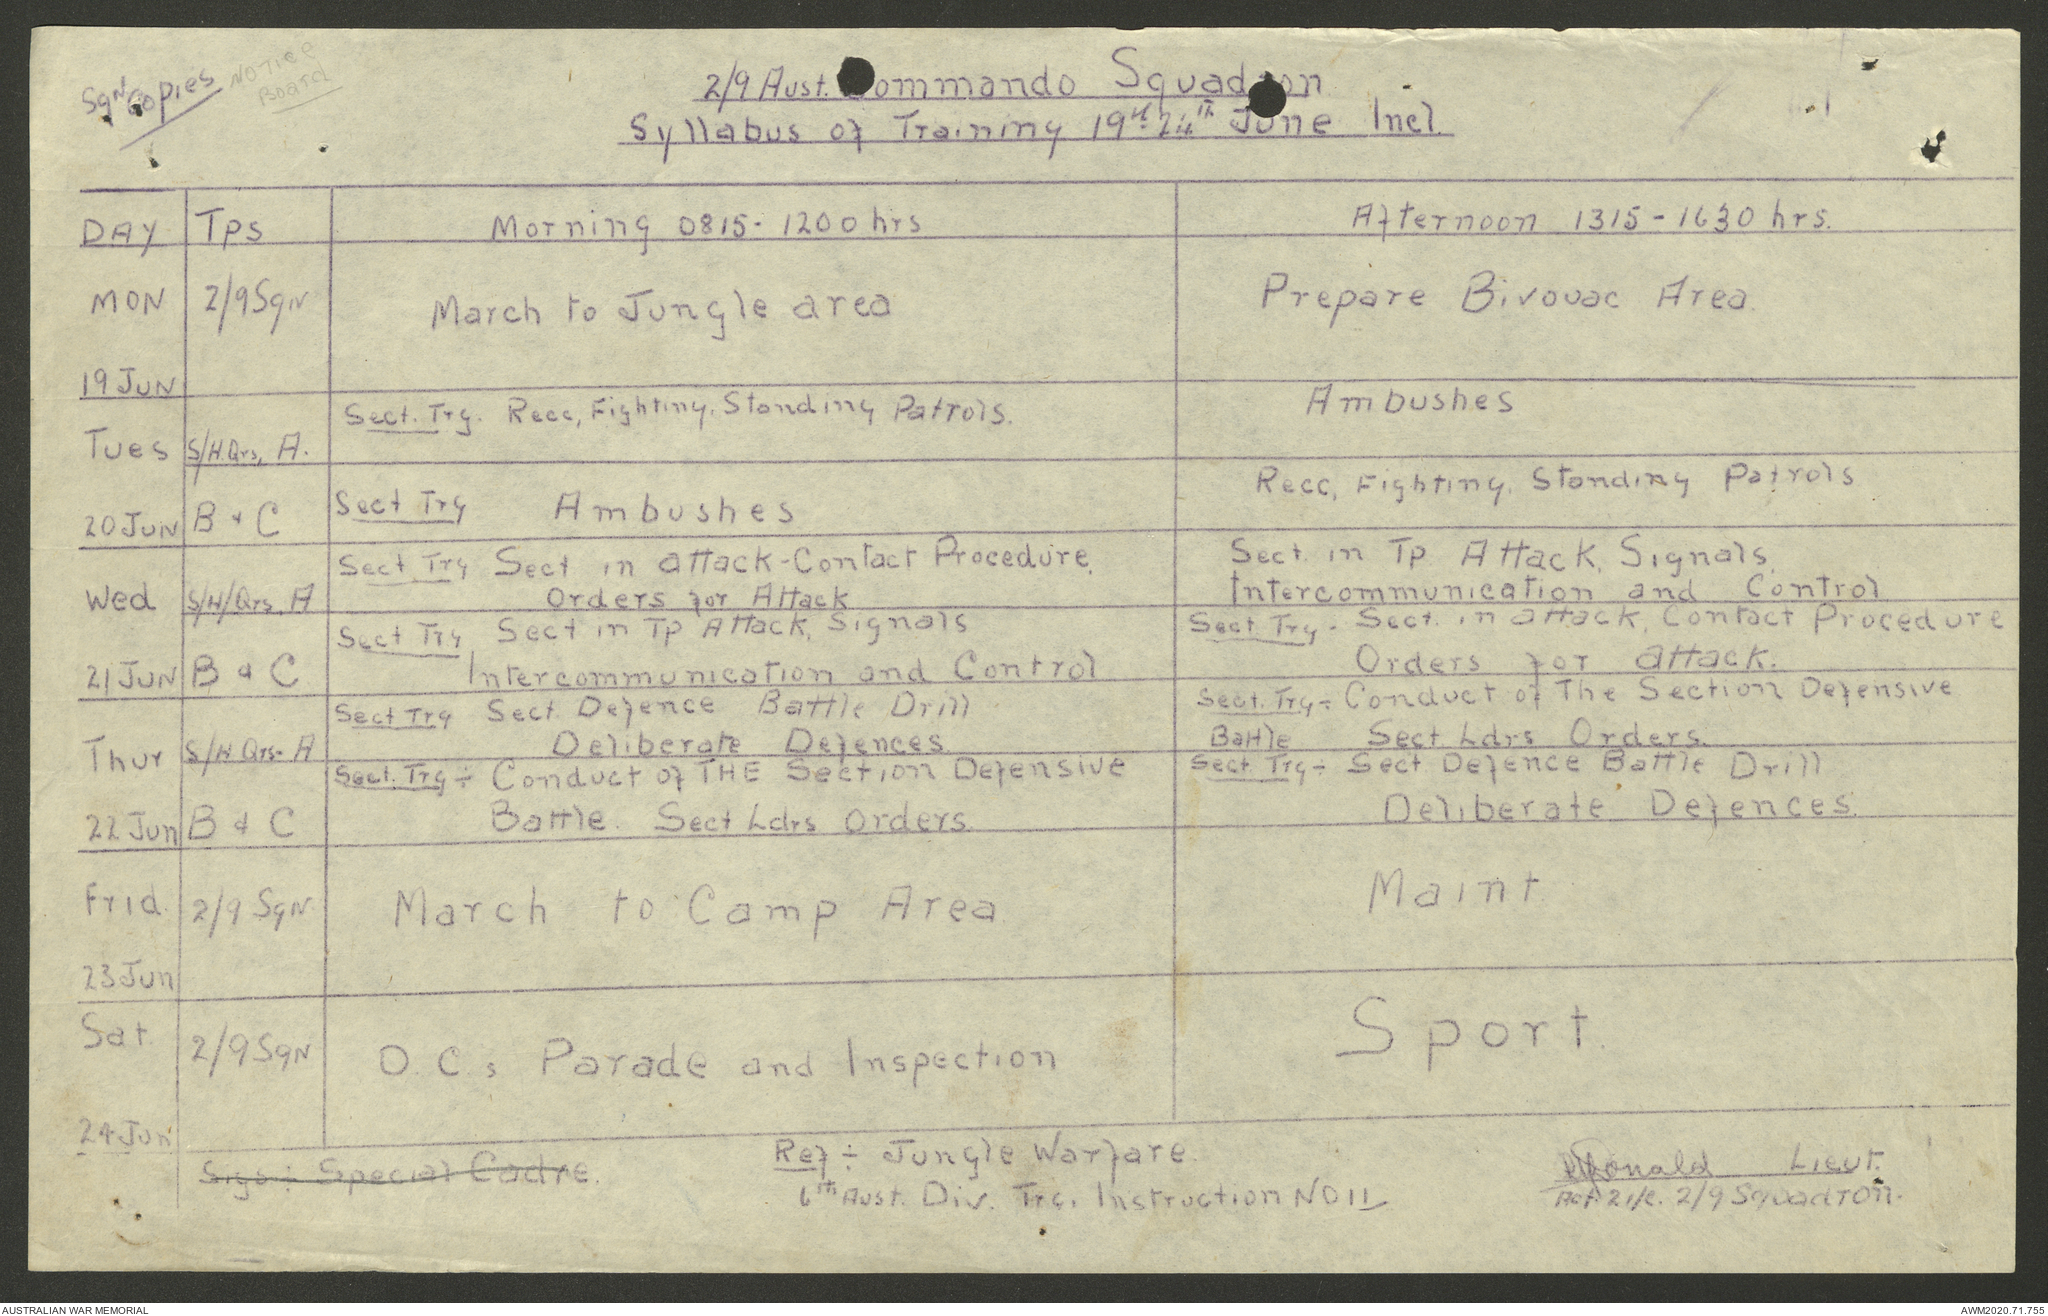 Sqn Copies
NOTICE
Board
2/9 Aust. Commando Squadron
Syllabus of Training 19th-24th June Incl.
DAY Tps Morning 0815-1200 hrs Afternoon 1315-1630 hrs.
MON 2/9 Sqn March to Jungle area Prepare Bivouac Area
19 JUN
Tues S/H Qrs, A. Sect. Trg. Recc, Fighting, Standing Patrols. Ambushes
20 JUN B & C Sect Trg Ambushes Recc, Fighting, Standing Patrols
Wed S/H/Qrs A Sect Trg Sect in attack-Contact Procedure, Sect. in Tp Attack, Signals,
Orders for Attack Intercommunication and Control
21 JUN B & C Sect Trg Sect in Tp Attack, Signals Sect Trg. Sect. in attack, Contact Procedure
Intercommunication and Control Orders for attack.
Thur S/H Qrs- A Sect Trg Sect. Defence Battle Drill Sect. Trg:- Conduct of The Section Defensive
Deliberate Defences Battle Sect Ldrs Orders.
22 Jun B & C Sect. Trg:- Conduct of THE Section Defensive Sect. Trg:- Sect Defence Battle Drill
Battle. Sect Ldrs Orders. Deliberate Defences.
Frid. 2/9 Sqn March to Camp Area. Maint.
23 Jun
Sat 2/9 Sqn O.C.s Parade and Inspection Sport.
24 Jun
Sigs:- Special Cadre.
Ref:- Jungle Warfare.
6th Aust. Div. Trg. Instruction NO 11
Lieut.
2i/c. 2/9 Squadron.
AUSTRALIAN WAR MEMORIAL
AWM2020.71.755